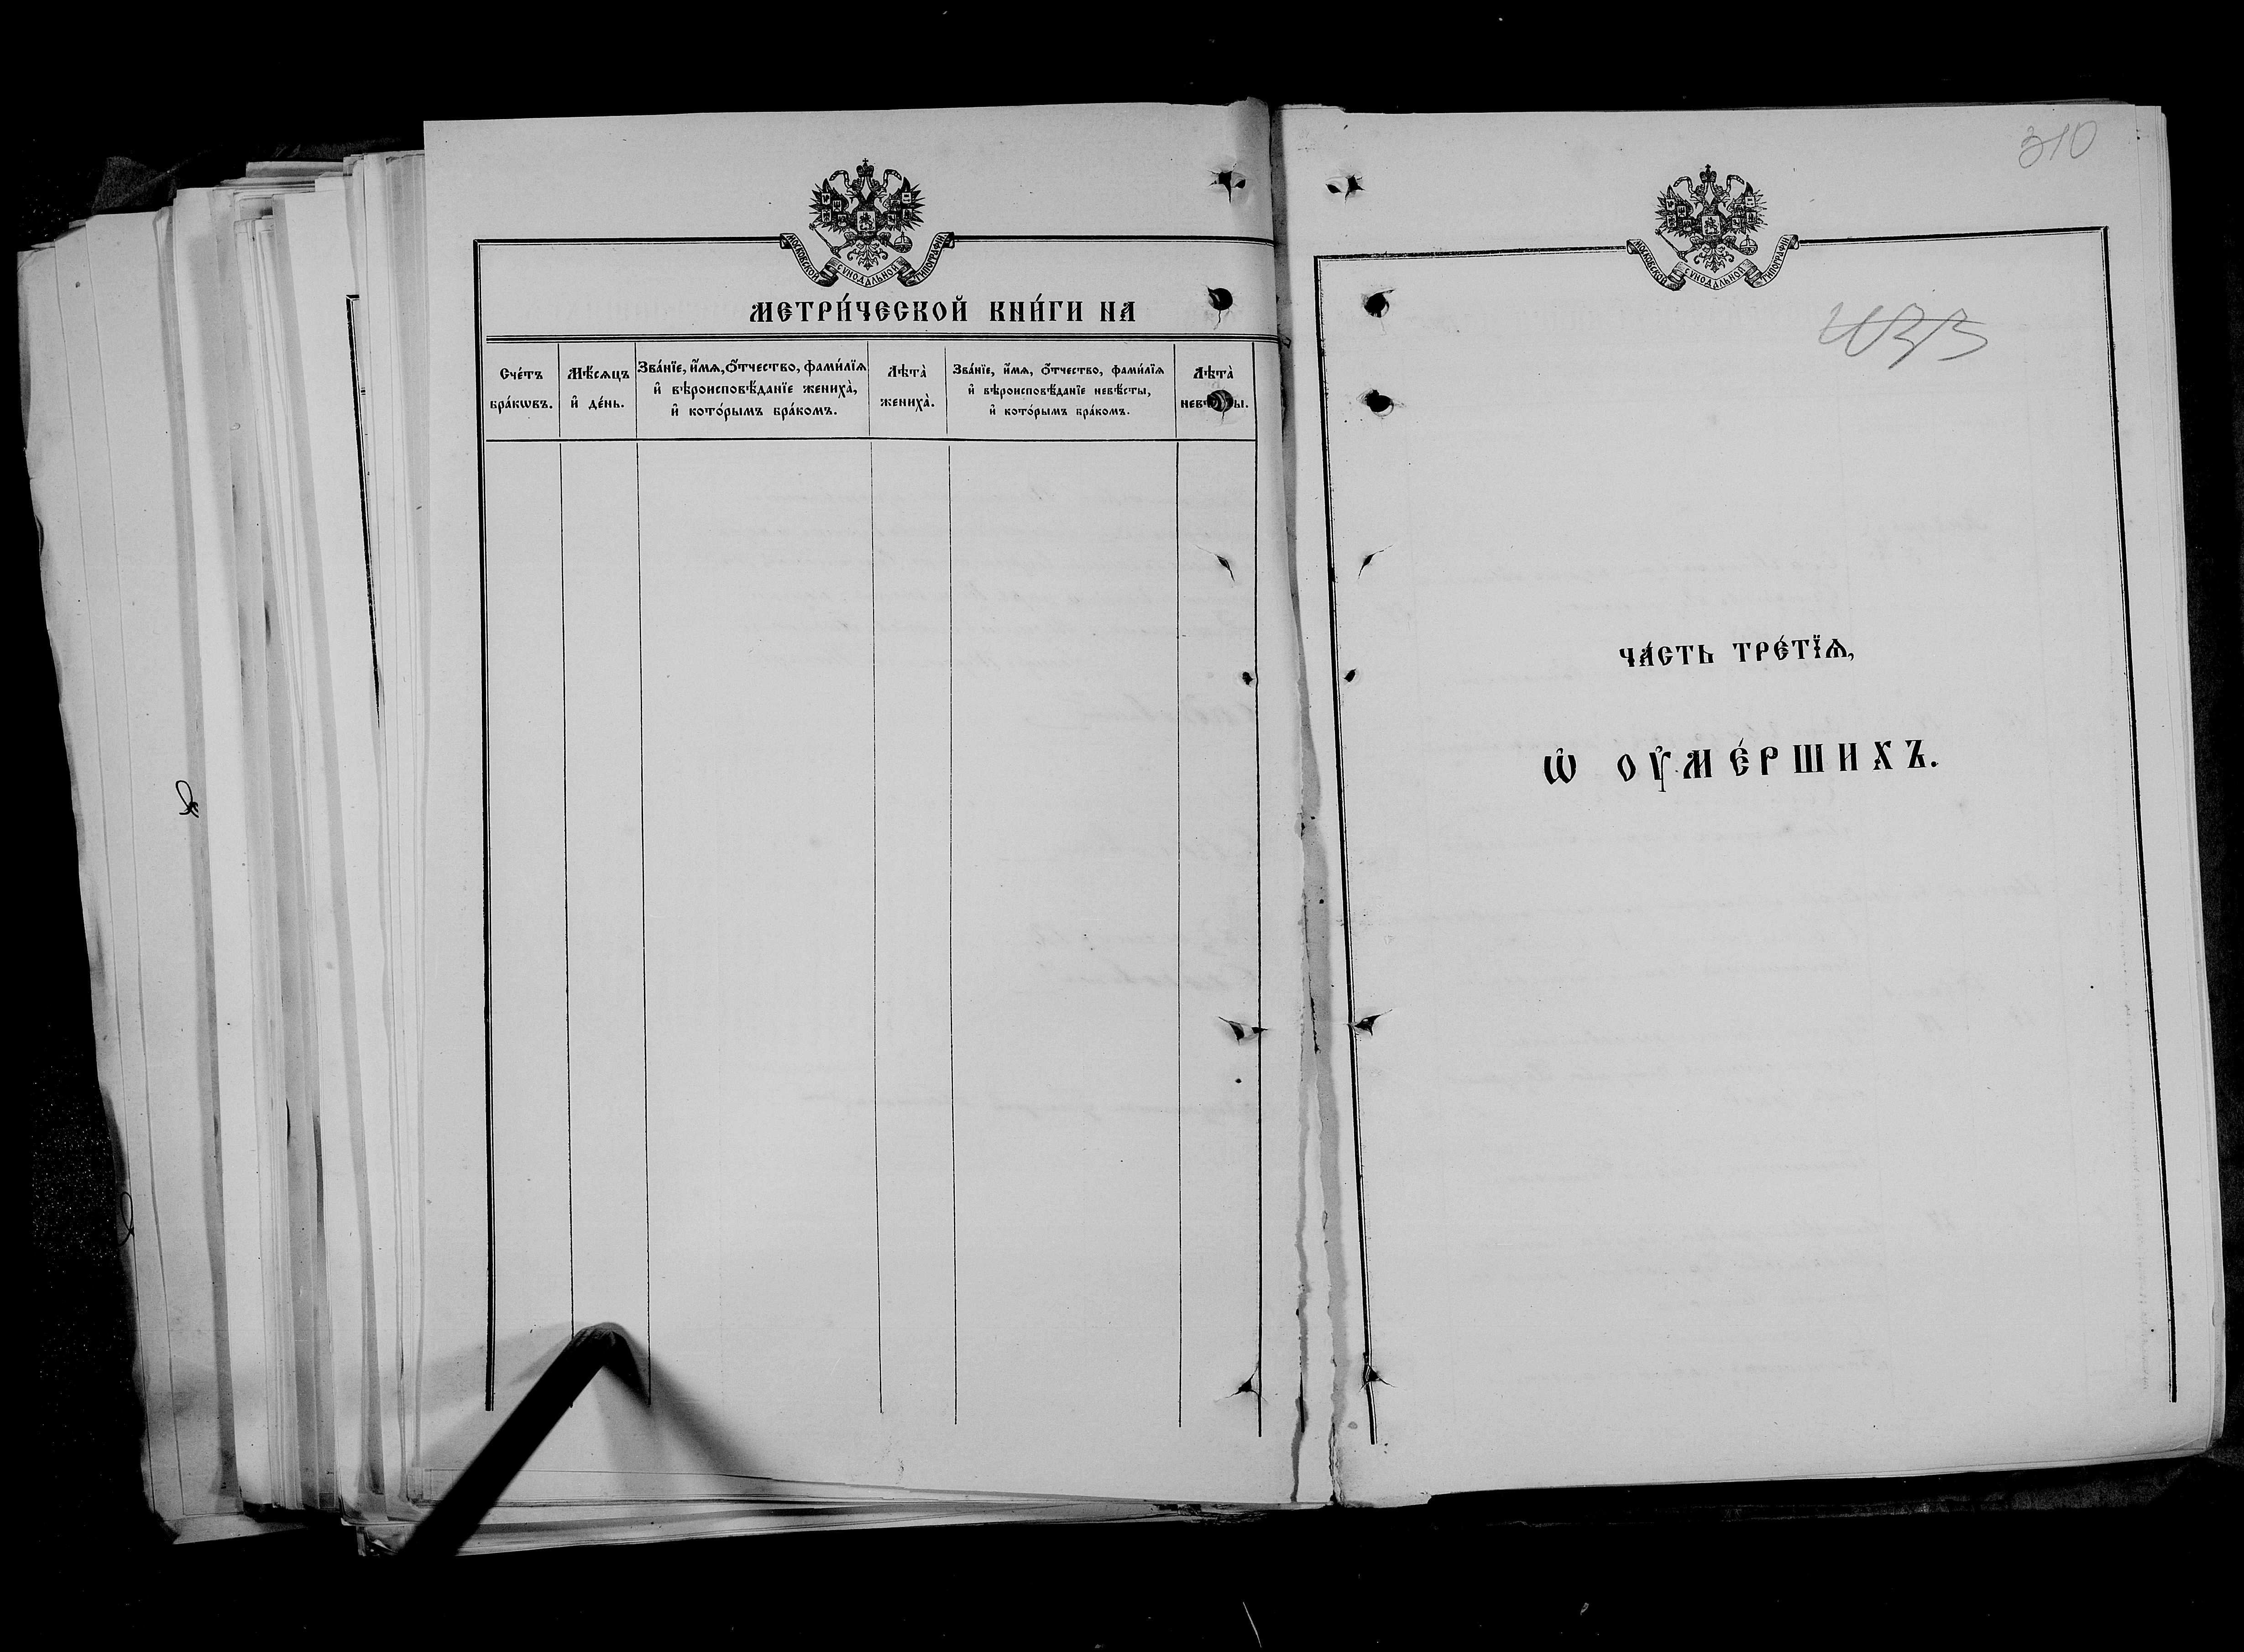 МОСКОВСКОЙ СУНОДАЛЬНОЙ ТИПОГРАФІИ
МЕТРИ́ЧЕСКОЙ КНИ́ГИ НА
Сче́тъ бра́кѡвъ.
Мѣ́сѧцъ и҆ де́нь.
Зва́нїе, и҆́мѧ, ѻ҆́тчество, фами́лїѧ
и҆ вѣроисповѣ́данїе жениха̀,
и҆ кото́рымъ бра́комъ.
Лѣта̀ жениха̀.
Зва́нїе, и҆́мѧ, ѻ҆́тчество, фами́лїѧ
и҆ вѣроисповѣ́данїе невѣ́сты,
и҆ кото́рымъ бра́комъ.
Лѣта̀
310
МОСКОВСКОЙ СУНОДАЛЬНОЙ ТИПОГРАФІИ
ЧА́СТЬ ТРЕ́ТЇѦ,
Ѡ҆ ОУ҆МЕ́РШИХЪ.